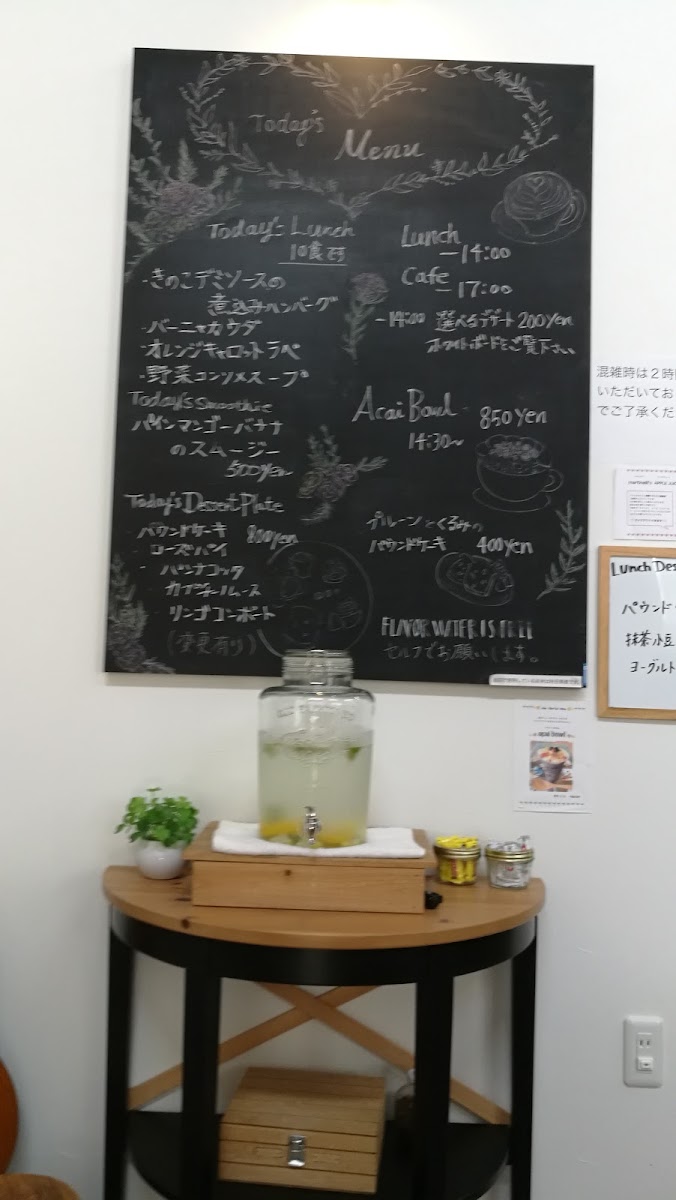 Today's
Menu
Today's Lunch
10食です
・きのこデミソースの
煮込みハンバーグ
・バーニャカウダ
・オレンジキャロットラペ
・野菜コンソメスープ
Today's Smoothie
パインマンゴーバナナ
のスムージー
500yen
Today's Dessert Plate
パウンドケーキ 800yen
ローズパイ
パンナコッタ
リンゴコンポート
(変更有り)
Lunch
-14:00
Cafe
-17:00
-14:00 選べるデザート200yen
ホワイトボードをご覧下さい
Acai Bowl 850yen
14:30~
プルーンとくるみの
パウンドケーキ 400yen
FLAVOR WATER IS FREE
セルフでお願いします。
混雑時は2時
いただいてお
でご了承くだ
Lunch Des
パウンド
抹茶小豆
ヨーグルト
acai bowl